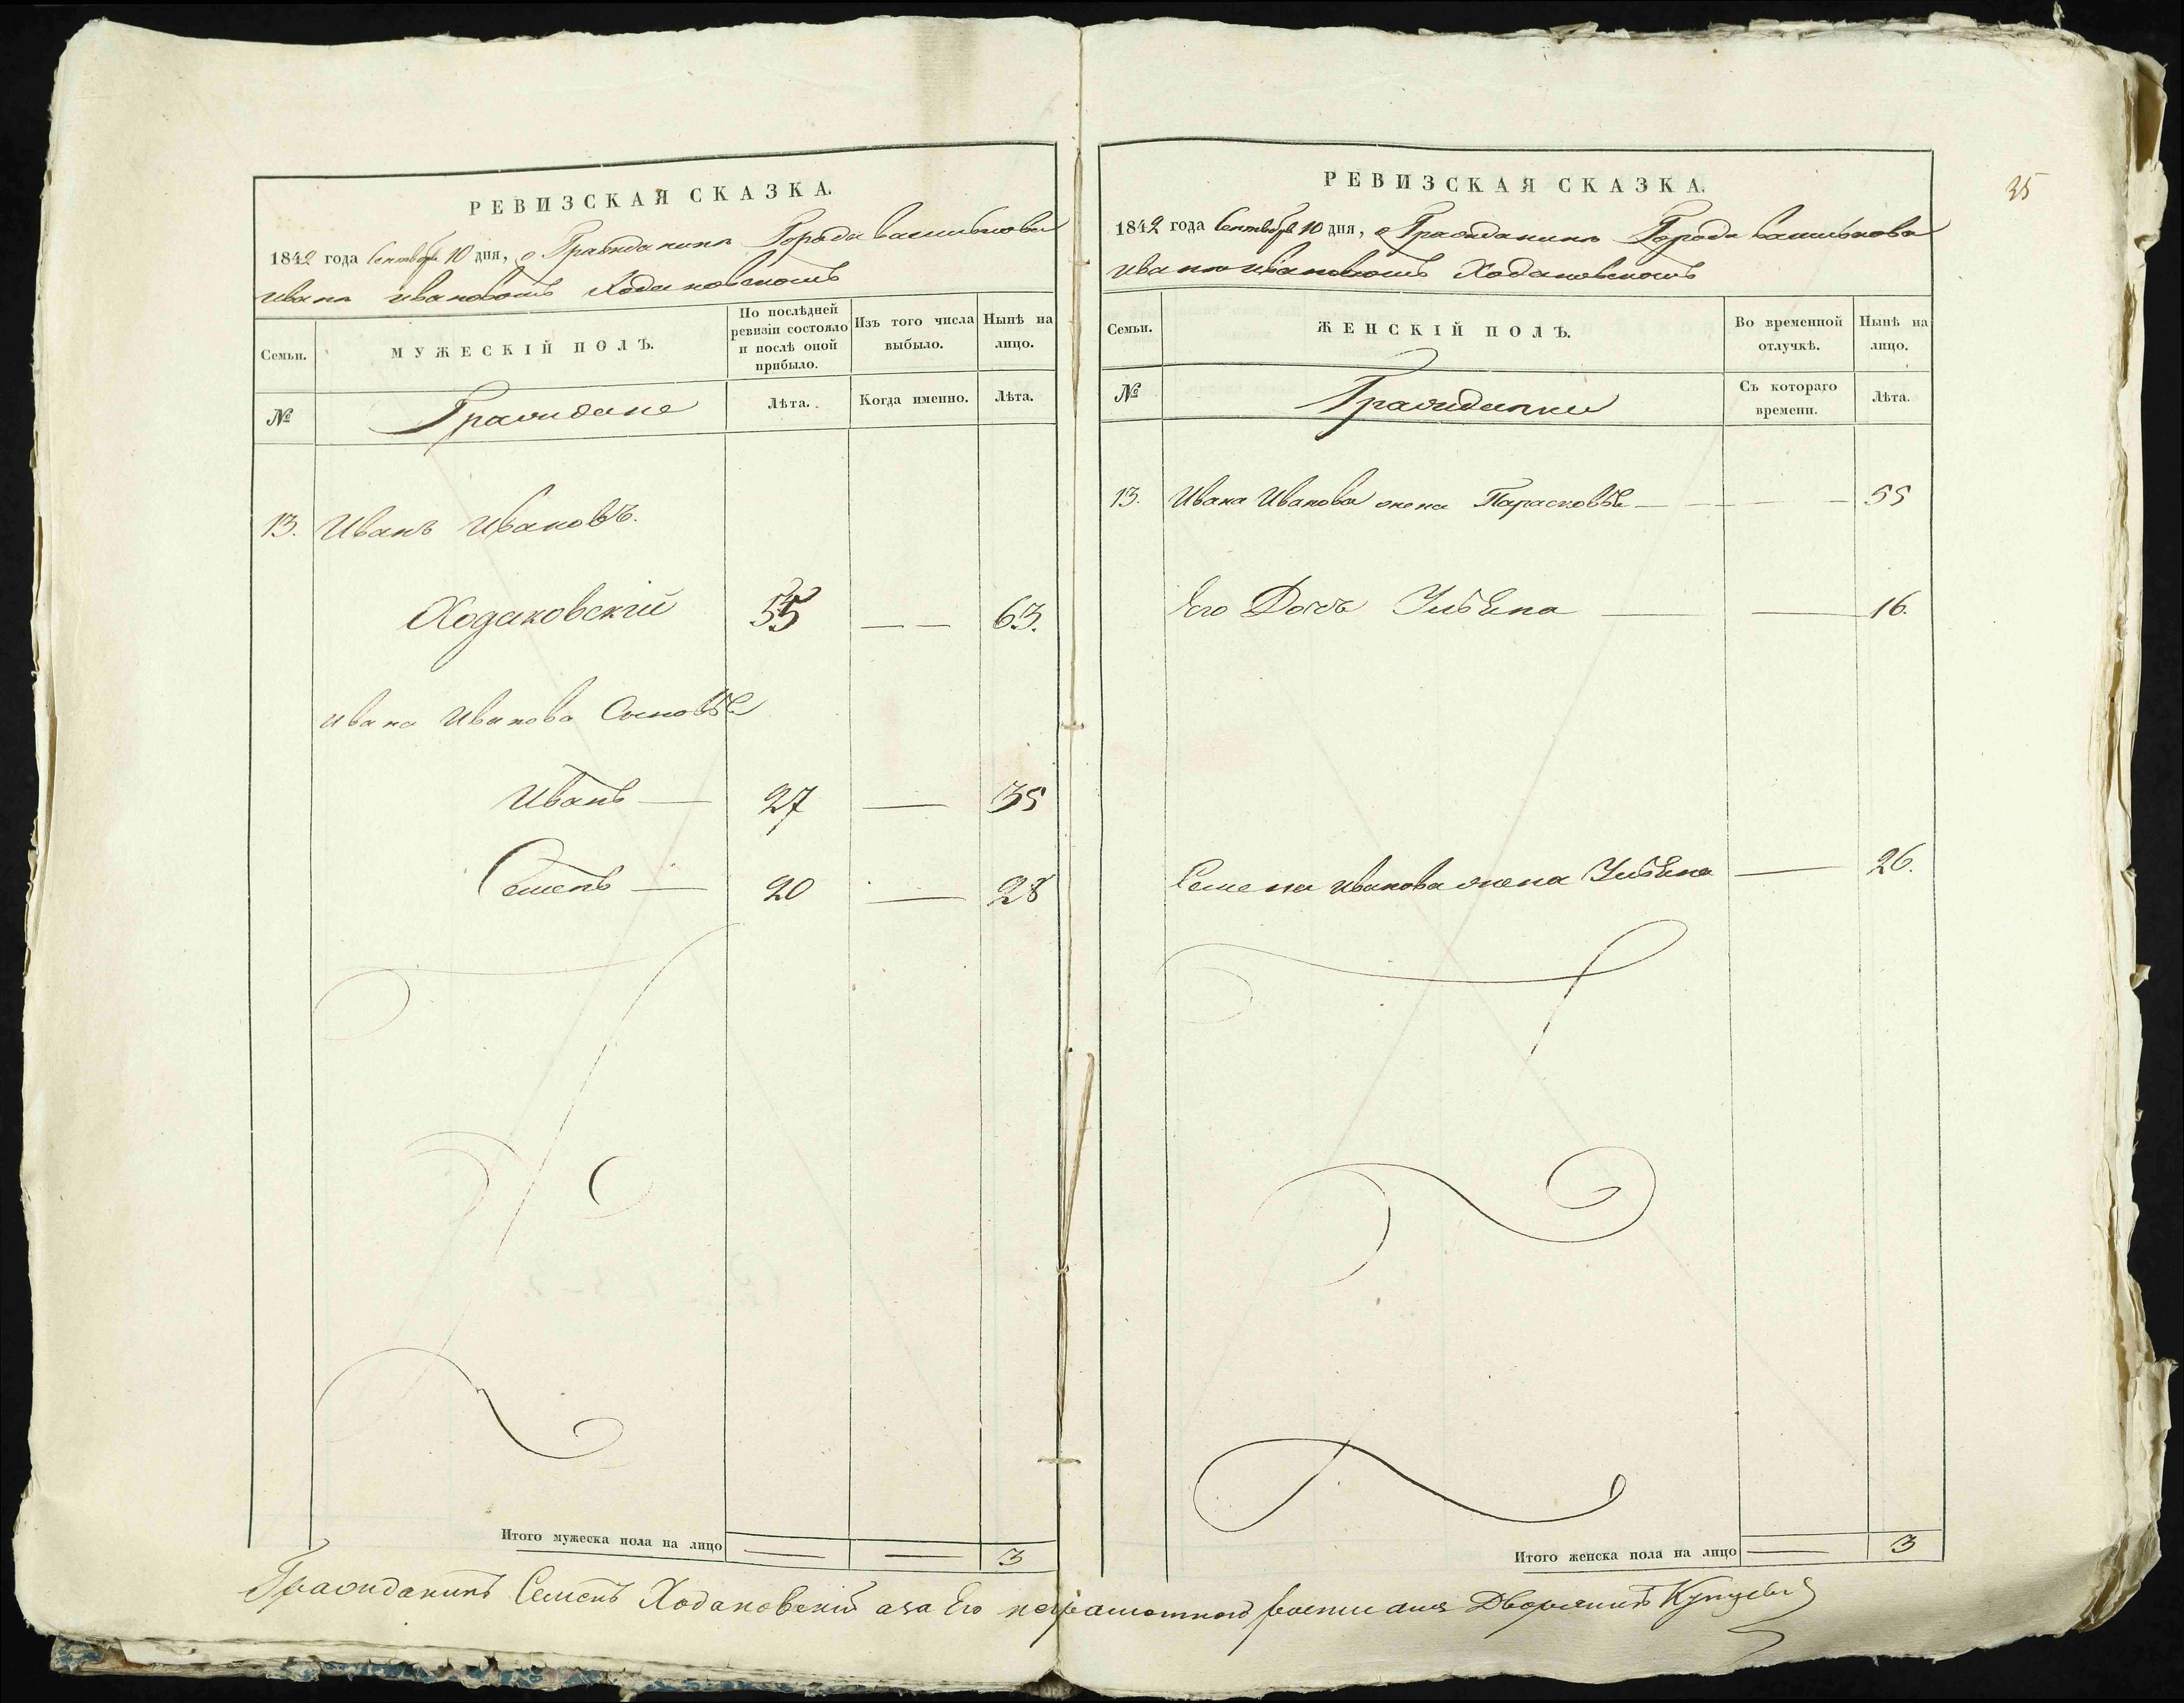 РЕВИЗСКАЯ СКАЗКА.
1842 года Сентября 10 дня, о Гражданинѣ Города Василькова
Иванѣ Ивановомъ Ходаковскомъ
Семьи.
МУЖЕСКІЙ ПОЛЪ.
По послѣдней ревизіи состояло и послѣ оной прибыло.
Изъ того числа выбыло.
Нынѣ на лицо.
№
Граждане
Лѣта.
Когда именно.
Лѣта.
13. Иванъ Ивановъ.
Ходаковскій 55 — — 63.
Ивана Иванова Сыновья
Иванъ — 27 — 35
Семенъ — 20 — 28
Итого мужеска пола на лицо — — 3
35
РЕВИЗСКАЯ СКАЗКА.
1842 года Сентября 10 дня, о Гражданинѣ Города Василькова
Иванѣ Ивановомъ Ходаковскомъ
Семьи.
ЖЕНСКІЙ ПОЛЪ.
Во временной отлучкѣ.
Нынѣ на лицо.
№
Гражданки
Съ котораго времени.
Лѣта.
13. Ивана Иванова жена Парасковья — — — 55
Его Дочь — — 16.
Семена Иванова жена — 26.
Итого женска пола на лицо — 3
Гражданинъ Семенъ Ходаковскій а за Его неграмотного Дворянинъ